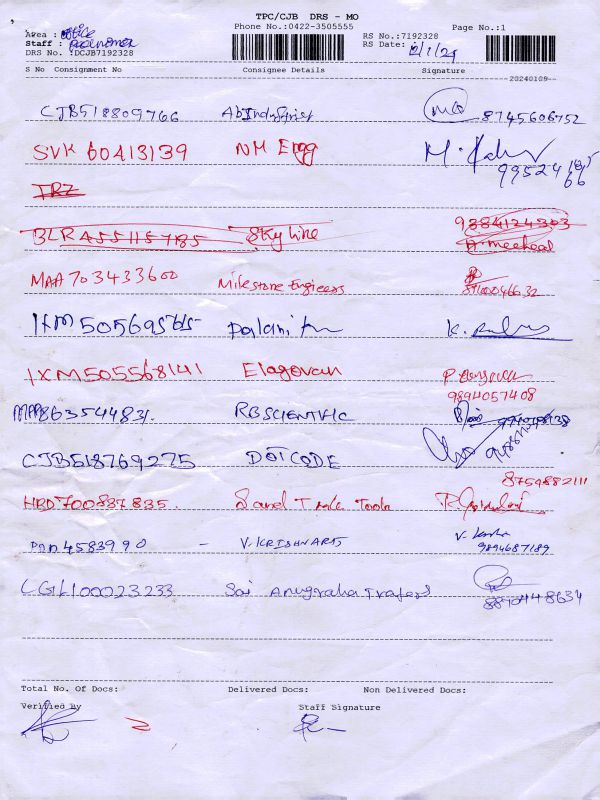 TPC/CJB DRS - MO
Phone No.:0422-3505555
Page No.:1
Area : office
Staff :
DRS No. :DCJB7192328
RS No.:7192328
RS Date:
S No Consignment No Consignee Details Signature
20240109
CJB518809766 AbIndustries 8745606752
SVK 60413139 NM Engg
99524
TRZ
BLRA55115785 Skyline 9384124303
MAA703433600 Milestone Engineers
IXM505695615 Palani
IXM505568141 Elagovan
9894057408
MAA863544831 RBSCIENTIFIC
CJB518769275 DOTCODE
8759882111
HBD700837835 Sand Trade Tools
4583990 - V.KRISHNARTS 9894687189
CGL100023233 Sai Anugraha Traders
8890448634
Total No. Of Docs: Delivered Docs: Non Delivered Docs:
Verified By Staff Signature